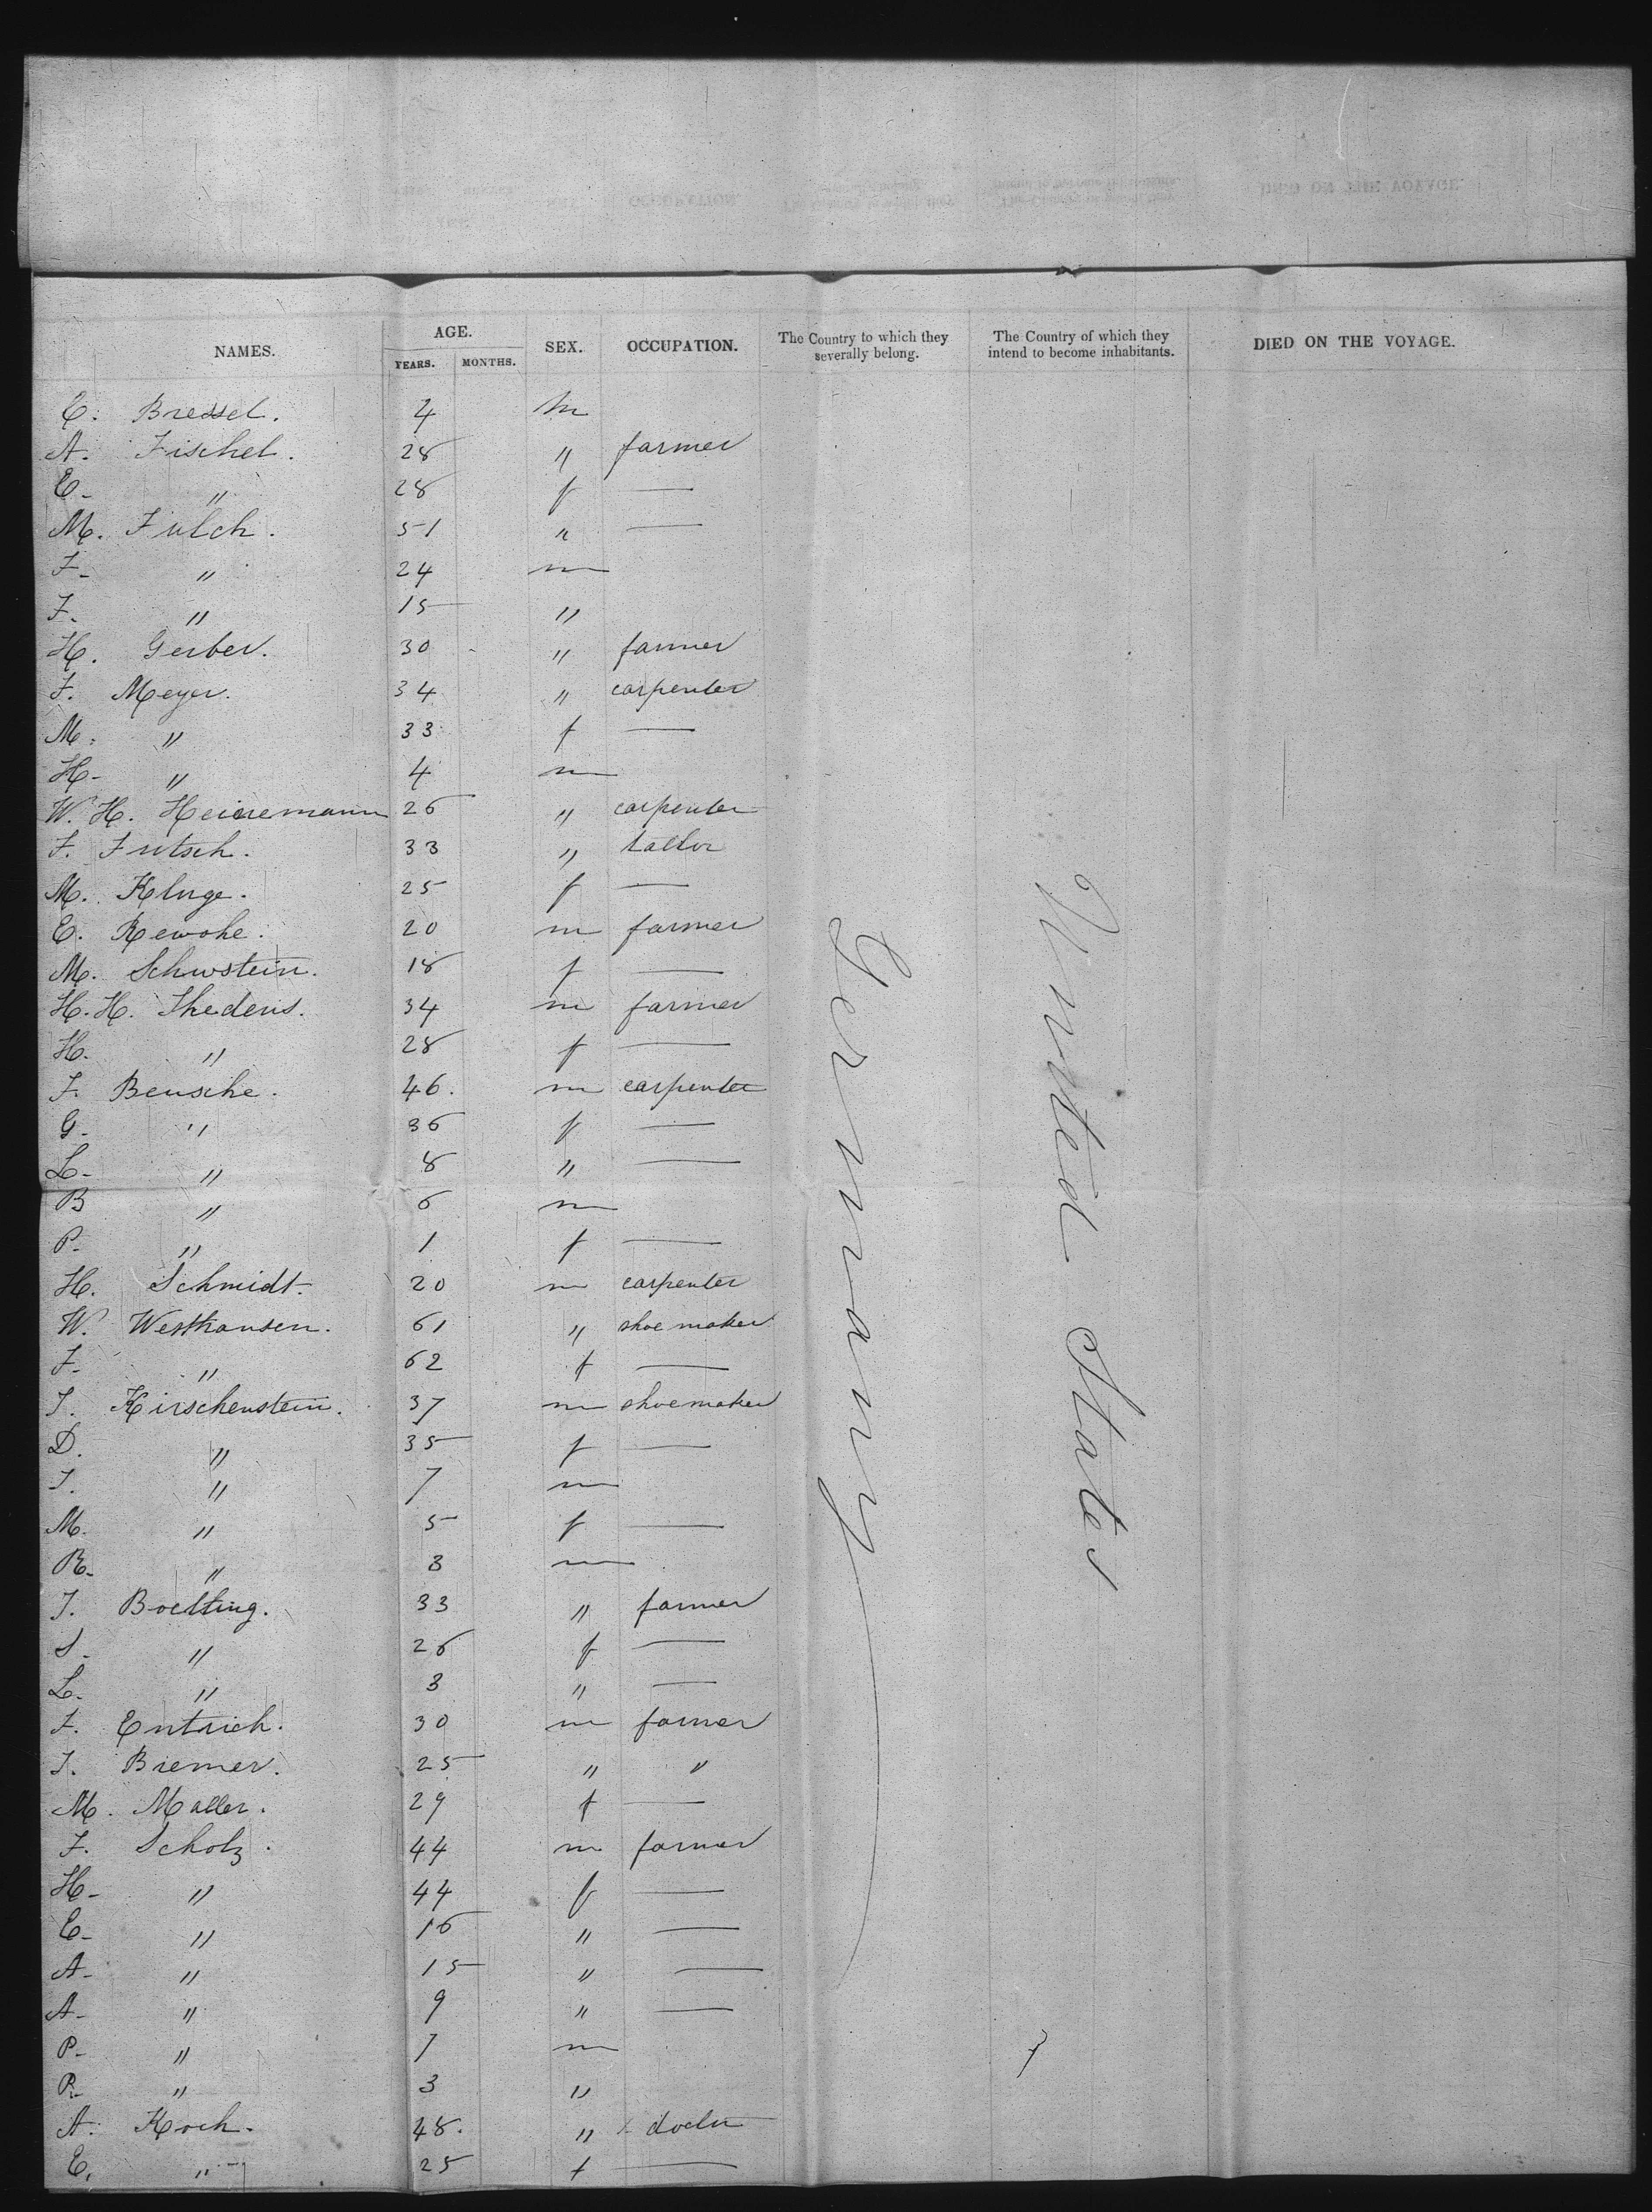 NAMES. AGE. YEARS. MONTHS. SEX. OCCUPATION. The Country to which they severally belong. The Country of which they intend to become inhabitants. DIED ON THE VOYAGE.
E. Bressel. 4 m
A. Fischel. 28 " farmer
E. " 28 f —
M. Fulch. 51 " —
F. " 24 m
F. " 15 "
H. Gerber. 30 " farmer
F. Meyer. 34 " carpenter
M. " 33 f —
H. " 4 m
W. H. Heinemann 26 " carpenter
F. Fritsch. 33 " tailor
M. Kluge. 25 f —
E. Rewohe. 20 m farmer
M. Schwstein. 18 f —
H. H. Thedens. 34 m farmer
H. " 28 f —
F. Beusche. 46. m carpenter
G. " 36 f —
L. " 8 " —
B " 6 m
P. " 1 f —
H. Schmidt. 20 m carpenter
W. Westhausen. 61 " shoemaker
F. " 62 f —
J. Kirschenstein. 37 m shoemaker
D. " 35 f —
J. " 7 m
M. " 5 f —
R. " 3 m
J. Boelting. 33 " farmer
S. " 26 f —
L. " 3 " —
F. Entrich. 30 m farmer
J. Bremer. 25 " "
M. Maller. 29 f —
F. Scholz. 44 m farmer
H. " 44 f —
E. " 16 " —
A. " 15 " —
A. " 9 " —
P. " 7 m
R. " 3 "
A. Koch. 48. " doctor
E. " 25 f —
Germany
United States